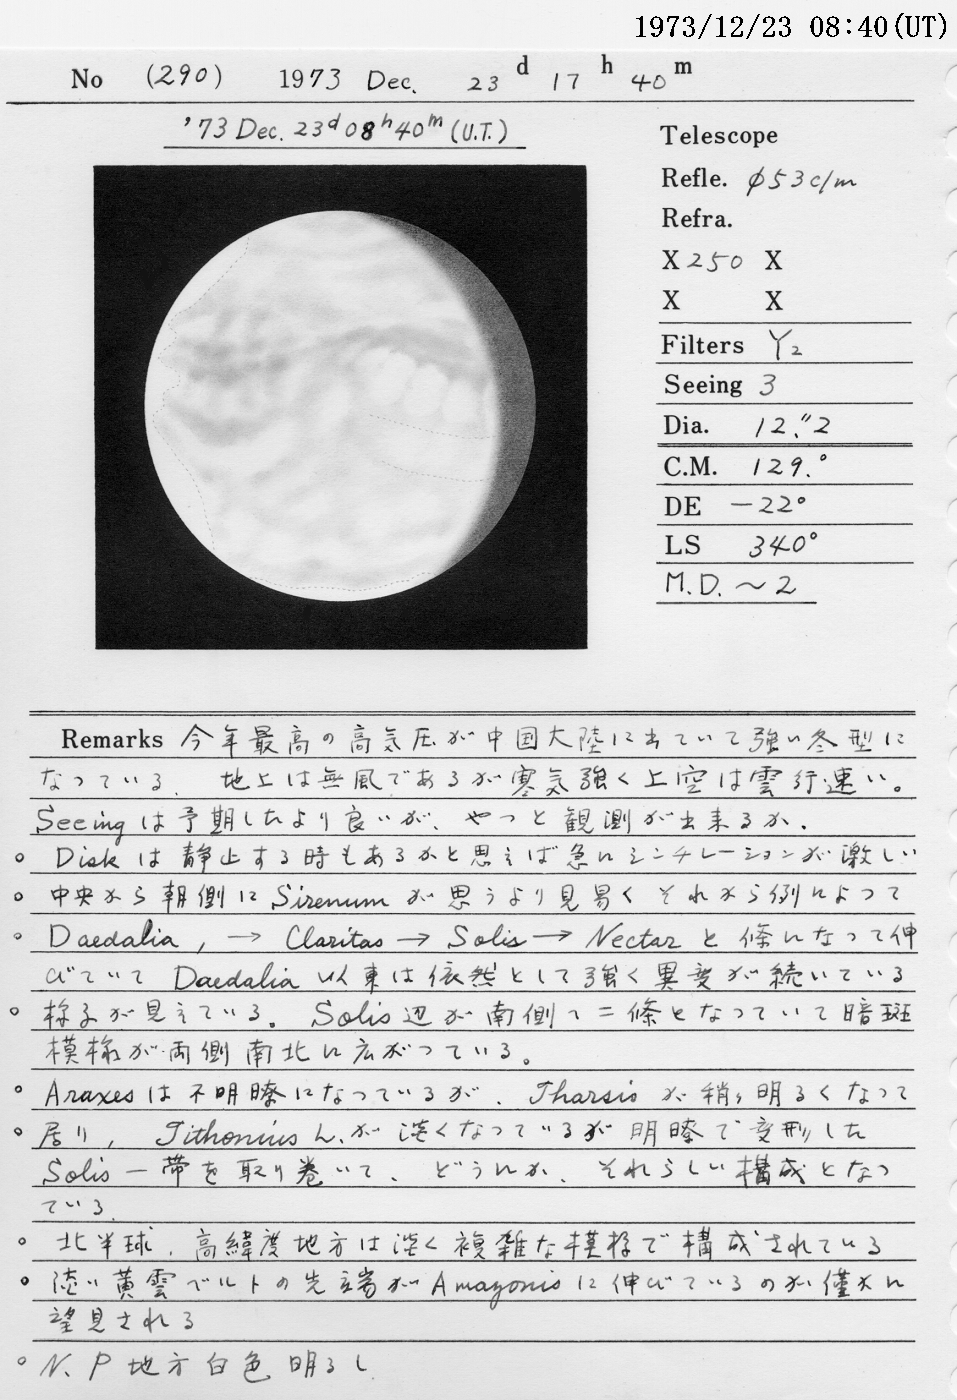 1973/12/23 08:40(UT)
No (290) 1973 Dec. 23d 17h 40m
'73 Dec. 23d 08h 40m (U.T.)
Telescope
Refle. φ53c/m
Refra.
X 250 X
X X
Filters Y2
Seeing 3
Dia. 12."2
C.M. 129.°
DE -22°
LS 340°
M.D. ~2
Remarks 今年最高の高気圧が中国大陸に出ていて強い冬型に
なっている. 地上は無風であるが寒気強く上空は雲行速い。
Seeingは予期したより良いが、やっと観測が出来るか.
○ Diskは静止する時もあるかと思えば急にシンチレーションが激しい
○ 中央から朝側にSirenumが思うより見易くそれから例によって
○ Daedalia, → Claritas → Solis → Nectarと條になって伸
びていてDaedalia以東は依然として強く異変が続いている
○ 様子が見えている。Solis辺が南側で二條となっていて暗斑
模様が両側南北に広がっている。
○ Araxesは不明瞭になっているが、Tharsisが稍々明るくなって
○ 居り, Tithonius L.が淡くなっているが明瞭で変形した
Solis一帯を取り巻いて、どうんか、それらしい構成となっ
ている.
○ 北半球, 高緯度地方は淡く複雑な模様で構成されている
○ 淡い黄雲ベルトの先端がAmazonisに伸びているのが僅かに
望見される
○ N.P地方白色明るし